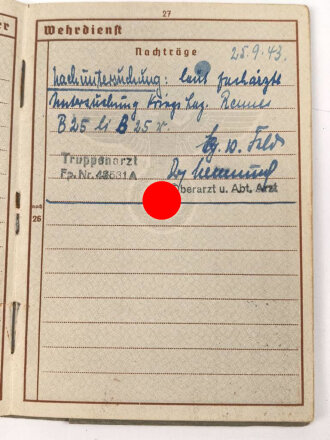 27
Wehrdienst
Nachträge
25.9.43.
Nachuntersuchung: laut fachärztl.
Untersuchung Kriegs Laz. Rennes
B 25 li B 25 r.
Truppenarzt
Fp. Nr. 48631 A
Oberarzt u. Abt. Arzt
noch
26